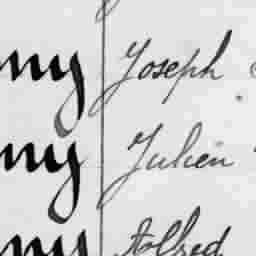 ny Joseph
ny Julien
ny Alfred